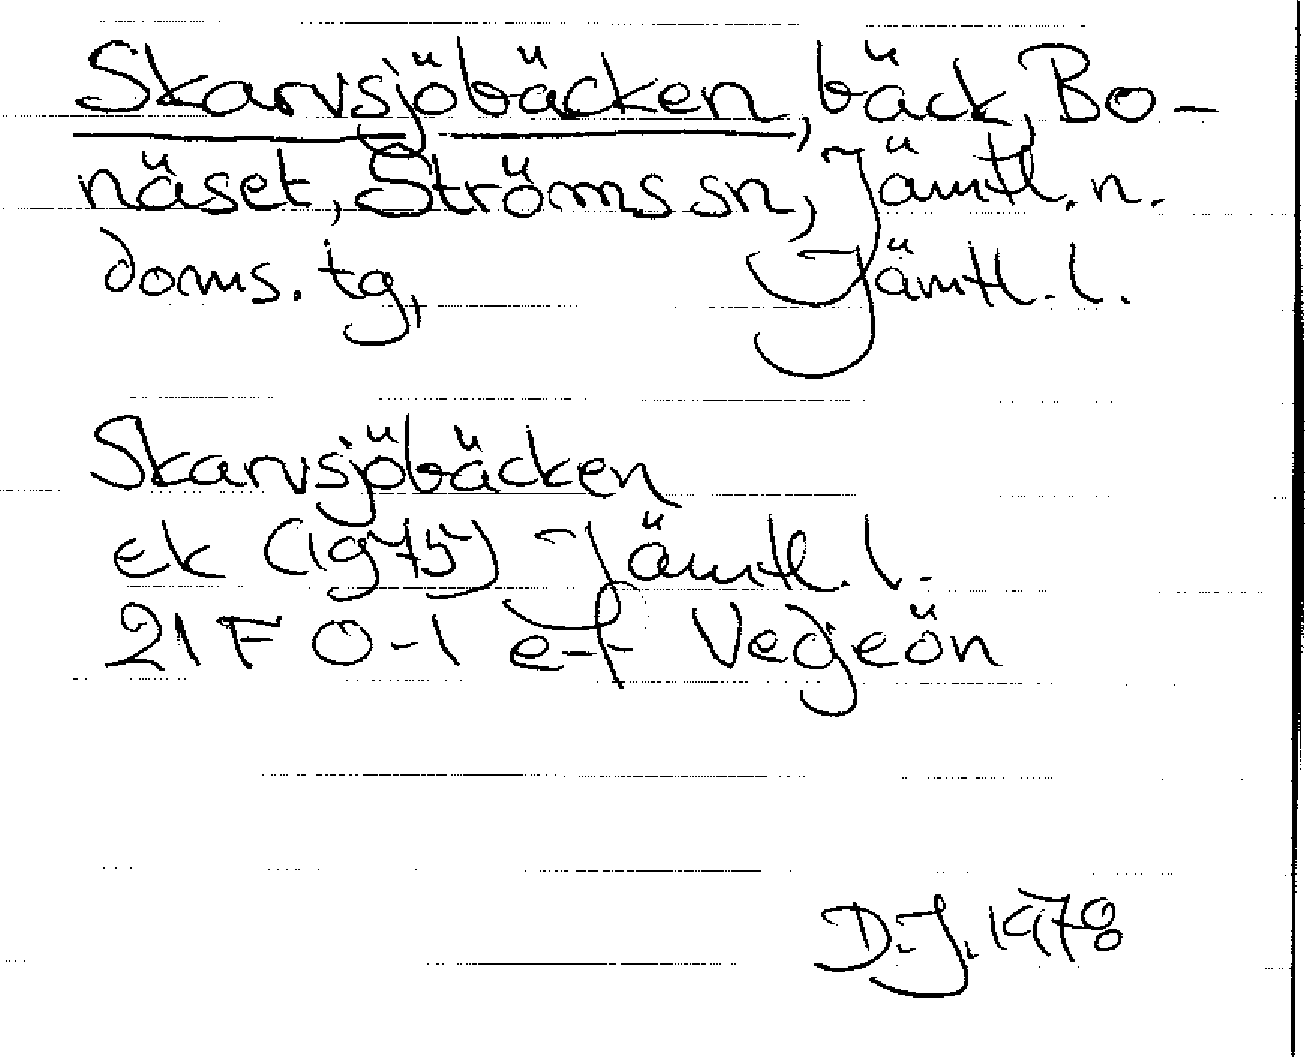 Skarvsjöbäcken, bäck, Bo-
näset, Ströms sn, Jämtl. n.
doms. tg, Jämtl. l.
Skarvsjöbäcken
ek (1975) Jämtl. l.
21 F 0-1 e-f Vegeön
D.J. 1978